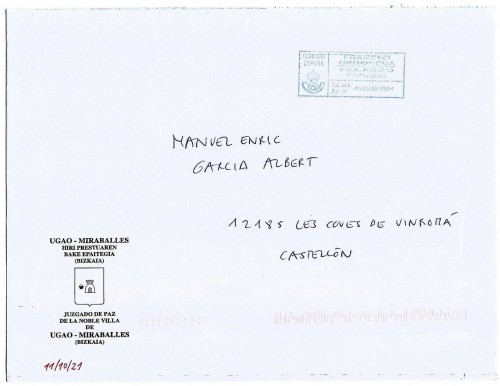 FRANKEO
ORDAINDUA
FRANQUEO
PAGADO
MANUEL ENRIC
GARCIA ALBERT
12185 LES COVES DE VINROMÁ
CASTELLÓN
UGAO - MIRABALLES
HIRI PRESTUAREN
BAKE EPAITEGIA
(BIZKAIA)
JUZGADO DE PAZ
DE LA NOBLE VILLA
DE
UGAO - MIRABALLES
(BIZKAIA)
11/10/21